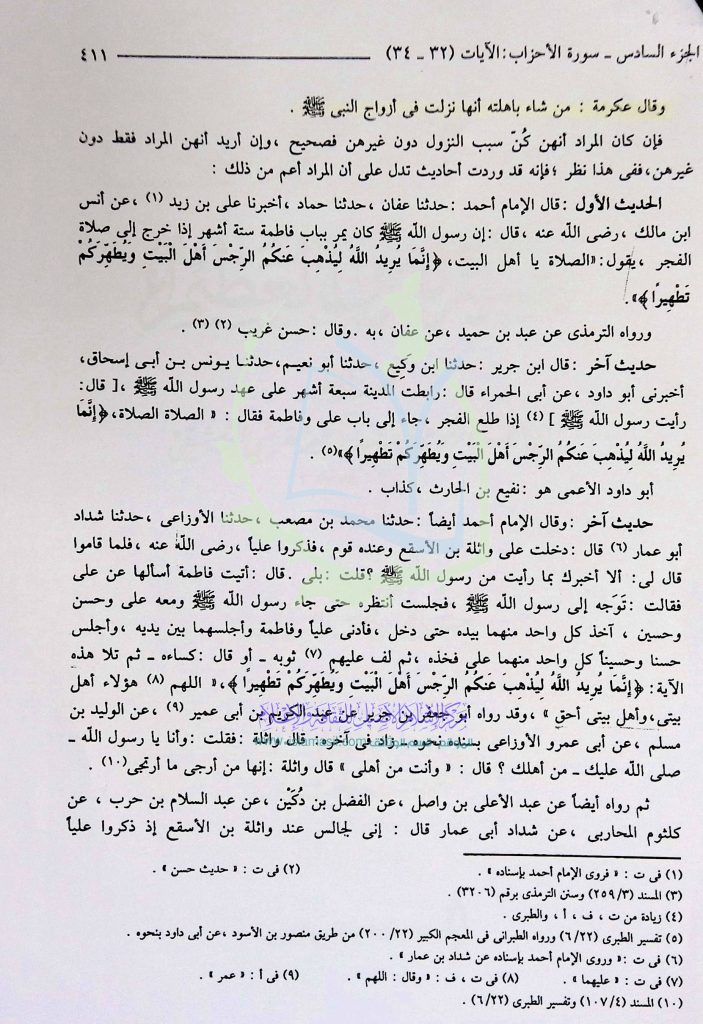 الجزء السادس ـ سورة الأحزاب : الآيات (٣٢ ـ ٣٤) ٤١١
وقال عكرمة : من شاء باهلته أنها نزلت فى أزواج النبى ﷺ .
فإن كان المراد أنهن كُنّ سبب النزول دون غيرهن فصحيح ، وإن أريد أنهن المراد فقط دون
غيرهن ، ففى هذا نظر ؛ فإنه قد وردت أحاديث تدل على أن المراد أعم من ذلك :
الحديث الأول : قال الإمام أحمد : حدثنا عفان ، حدثنا حماد ، أخبرنا على بن زيد (١) ، عن أنس
ابن مالك ، رضى الله عنه ، قال : إن رسول الله ﷺ كان يمر بباب فاطمة ستة أشهر إذا خرج إلى صلاة
الفجر ، يقول : «الصلاة يا أهل البيت ، ﴿ إِنَّمَا يُرِيدُ اللَّهُ لِيُذْهِبَ عَنكُمُ الرِّجْسَ أَهْلَ الْبَيْتِ وَيُطَهِّرَكُمْ
تَطْهِيرًا ﴾» .
ورواه الترمذى عن عبد بن حميد ، عن عفان ، به . وقال : حسن غريب (٢) (٣) .
حديث آخر : قال ابن جرير : حدثنا ابن وَكِيع ، حدثنا أبو نعيم ، حدثنا يونس بن أبى إسحاق ،
أخبرنى أبو داود ، عن أبى الحمراء قال : رابطت المدينة سبعة أشهر على عهد رسول الله ﷺ ، [ قال :
رأيت رسول الله ﷺ ] (٤) إذا طلع الفجر ، جاء إلى باب على وفاطمة فقال : « الصلاة الصلاة ، ﴿ إِنَّمَا
يُرِيدُ اللَّهُ لِيُذْهِبَ عَنكُمُ الرِّجْسَ أَهْلَ الْبَيْتِ وَيُطَهِّرَكُمْ تَطْهِيرًا ﴾» (٥) .
أبو داود الأعمى هو : نفيع بن الحارث ، كذاب .
حديث آخر : وقال الإمام أحمد أيضاً : حدثنا محمد بن مصعب ، حدثنا الأوزاعى ، حدثنا شداد
أبو عمار (٦) قال : دخلت على واثلة بن الأسقع وعنده قوم ، فذكروا علياً ، رضى الله عنه ، فلما قاموا
قال لى : ألا أخبرك بما رأيت من رسول الله ﷺ ؟ قلت : بلى . قال : أتيت فاطمة أسألها عن على
فقالت : تَوَجه إلى رسول الله ﷺ ، فجلست أنتظره حتى جاء رسول الله ﷺ ومعه على وحسن
وحسين ، آخذ كل واحد منهما بيده حتى دخل ، فأدنى علياً وفاطمة وأجلسهما بين يديه ، وأجلس
حسنا وحسيناً كل واحد منهما على فخذه ، ثم لف عليهم (٧) ثوبه ـ أو قال : كساءه ـ ثم تلا هذه
الآية : ﴿ إِنَّمَا يُرِيدُ اللَّهُ لِيُذْهِبَ عَنكُمُ الرِّجْسَ أَهْلَ الْبَيْتِ وَيُطَهِّرَكُمْ تَطْهِيرًا ﴾ ، « اللهم (٨) هؤلاء أهل
بيتى ، وأهل بيتى أحق » ، وقد رواه أبو جعفر بن جرير عن عبد الكريم بن أبى عمير (٩) ، عن الوليد بن
مسلم ، عن أبى عمرو الأوزاعى بسنده نحوه ، زاد فى آخره : قال واثلة : فقلت : وأنا يا رسول الله ـ
صلى الله عليك ـ من أهلك ؟ قال : « وأنت من أهلى » قال واثلة : إنها من أرجى ما أرتجى (١٠) .
ثم رواه أيضاً عن عبد الأعلى بن واصل ، عن الفضل بن دُكَيْن ، عن عبد السلام بن حرب ، عن
كلثوم المحاربى ، عن شداد أبى عمار قال : إنى لجالس عند واثلة بن الأسقع إذ ذكروا علياً
(١) فى ت : « فروى الإمام أحمد بإسناده » . (٢) فى ت : « حديث حسن » .
(٣) المسند (٢٥٩/٣) وسنن الترمذى برقم (٣٢٠٦) .
(٤) زيادة من ت ، ف ، أ ، والطبرى .
(٥) تفسير الطبرى (٦/٢٢) ورواه الطبرانى فى المعجم الكبير (٢٠٠/٢٢) من طريق منصور بن الأسود ، عن أبى داود بنحوه .
(٦) فى ت : « وروى الإمام أحمد بإسناده عن شداد بن عمار » .
(٧) فى ت : « عليهما » . (٨) فى ت ، ف : « وقال : اللهم » . (٩) فى أ : « عمر » .
(١٠) المسند (١٠٧/٤) وتفسير الطبرى (٦/٢٢) .